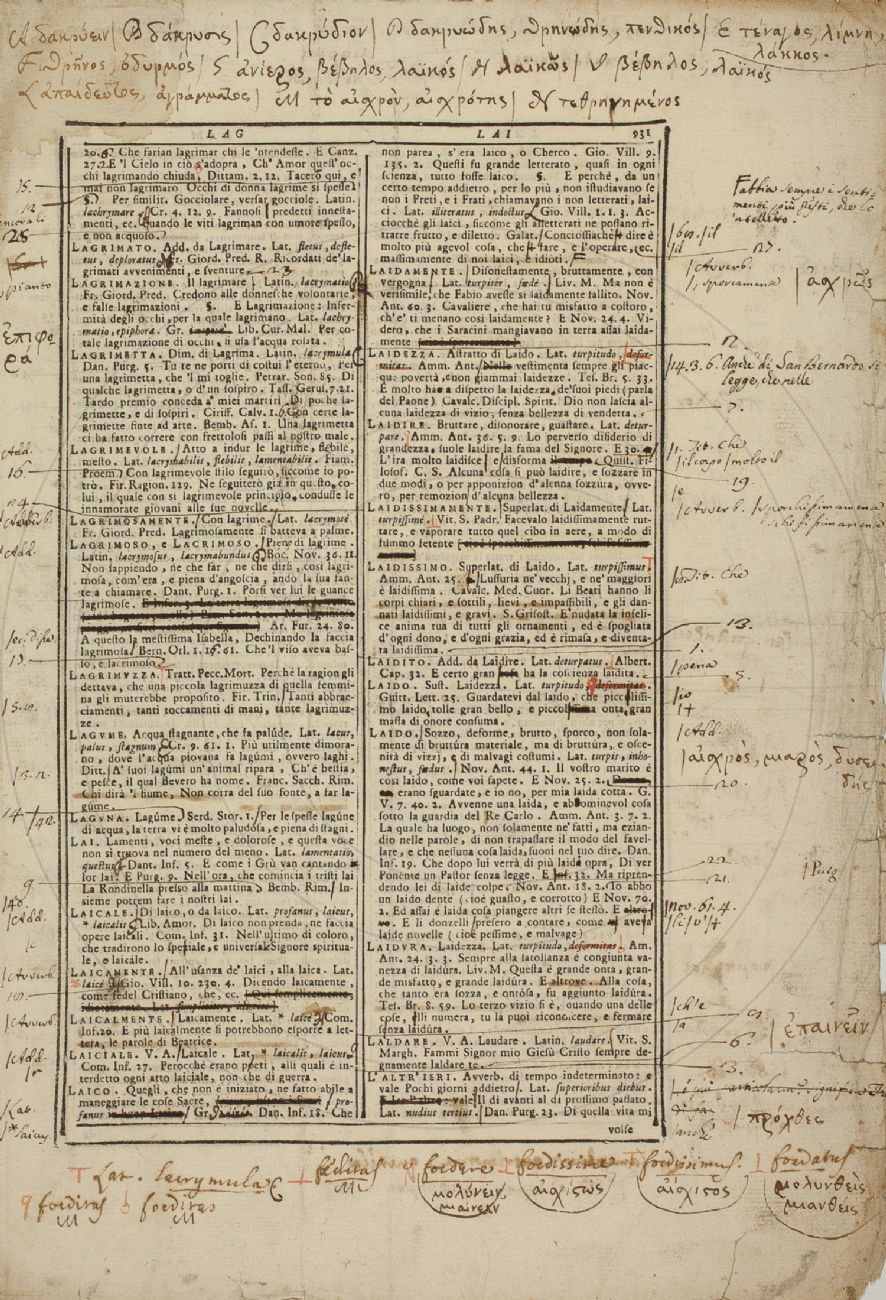 A δακρύειν / B δάκρυσις / C δακρύδιον / D δακρυώδης, θρηνώδης, πενθικός / E τέναγος, λίμνη,
λάκκος.
F θρῆνος, ὀδυρμός / G ἀνίερος, βέβηλος, λαϊκός / H λαϊκῶς / V βέβηλος, λαϊκός
L ἀπαιδεύτος, ἀγράμματος / M τὸ αἰσχρὸν, αἰσχρότης / N τεθρηνημένος
LAG
LAI 931
20.6. Che farian lagrimar chi le 'ntendesse. E Canz.
27.2 E 'l Cielo in ciò s'adopra, Ch' Amor quest' oc-
chi lagrimando chiuda. Dittam. 2. 12. Tacerò qui, e
mai non lagrimaro Occhi di donna lagrime sì spesse
§. Per similit. Gocciolare, versar gocciole. Latin.
lachrymare. Cr. 4. 12. 9. Fannosi predetti innesta-
menti, ec. quando le viti lagriman con umore spesso,
e non acquoso.
LAGRIMATO. Add. da Lagrimare. Lat. fletus, defle-
tus, deploratus. Fr. Giord. Pred. R. Ricordati de' la-
grimati avvenimenti, e sventure.
LAGRIMAZIONE. Il lagrimare. Latin. lacrymatio.
Fr. Giord. Pred. Credono alle donnesche volontarie,
e false lagrimazioni. §. E Lagrimazione: Infer-
mità degli occhi, per la quale lagrimano. Lat. lachry-
matio, epiphora. Gr. Lib. Cur. Mal. Per co-
tale lagrimazione di occhi, si usa l'acqua rosata.
LAGRIMETTA. Dim. di Lagrima. Latin. lacrymula.
Dan. Purg. 5. Tu te ne porti di costui l'eterno, Per
una lagrimetta, che 'l mi toglie. Petrar. Son. 85. Di
qualche lagrimetta, o d'un sospiro. Tass. Gerus. 7. 21.
Tardo premio conceda a' miei martiri Di poche la-
grimette, e di sospiri. Ciriff. Calv. 1. 6. Con certe la-
grimette finte ad arte. Bemb. As. 1. Una lagrimetta
ci ha fatto correre con frettolosi passi al nostro male.
LAGRIMEVOLE. Atto a indur le lagrime, flebile,
mesto. Lat. lacrymabilis, flebilis, lamentabilis. Fiam.
Proem. Con lagrimevole stilo seguirò, siccome io po-
trò. Fir. Ragion. 129. Ne seguiterò già in questo, co-
lui, il quale con sì lagrimevole principio, condusse le
innamorate giovani alle sue novelle.
LAGRIMOSAMENTE. Con lagrime. Lat. lacrymosè
Fr. Giord. Pred. Lagrimosamente si batteva a palme.
LAGRIMOSO, e LACRIMOSO. Pien di lagrime.
Latin. lacrymosus, lacrymabundus. Boc. Nov. 36. 11.
Non sappiendo, ne che far, ne che dirsi, così lagri-
mosa, com'era, e piena d'angoscia, andò la sua fan-
te a chiamare. Dant. Purg. 1. Porsi ver lui le guance
lagrimose.
Ar. Fur. 24. 80.
A questo la mestissima Isabella, Dechinando la faccia
lagrimosa. Bern. Orl. 1. 16. 61. Che 'l viso aveva bas-
so, e lacrimoso.
LAGRIMUZZA. Tratt. Pecc. Mort. Perchè la ragion gli
dettava, che una piccola lagrimuzza di quella femmi-
na gli muterebbe proposito. Fir. Trin. Tanti abbrac-
ciamenti, tanti toccamenti di mani, tante lagrimuz-
ze.
LAGUME. Acqua stagnante, che fa palude. Lat. lacus,
palus, stagnum. Cr. 9. 61. 1. Più utilmente dimora-
no, dove l'acqua piovana fa lagúmi, ovvero laghi.
Ditt. A' suoi lagúmi un' animal ripara, Ch' è bestia,
e pesce, il qual Bevero ha nome. Franc. Sacch. Rim.
Chi dirà 'l fiume, Non corra del suo fonte, a far la-
gúme.
LAGUNA. Lagúme. Serd. Stor. 1. Per le spesse lagúne
di acqua, la terra vi è molto paludosa, e piena di stagni.
LAI. Lamenti, voci meste, e dolorose, e questa voce
non si truova nel numero del meno. Lat. lamentatio,
questus. Dant. Inf. 5. E come i Grù van cantando
lor lai. E Purg. 9. Nell'ora, che comincia i tristi lai
La Rondinella presso alla mattina. Bemb. Rim. In-
sieme potrem fare i nostri lai.
LAICALE. Di laico, o da laico. Lat. profanus, laicus,
* laicalis. Lib. Amor. Di laico non prenda, ne faccia
opere laicali. Com. Inf. 31. Nell' ultimo di coloro,
che tradirono lo speziale, e universale Signore spiritua-
le, o laicale.
LAICAMENTE. All'usanza de' laici, alla laica. Lat.
laicè. Gio. Vill. 10. 230. 4. Dicendo laicamente,
come fedel Cristiano, che, ec.
LAICALMENTE. Laicamente. Lat. * laicè. Com.
Inf. 20. E più laicalmente si potrebbono esporre a let-
tera, le parole di Beatrice.
LAICIALE. V. A. Laicale. Lat. * laicalis, laicus.
Com. Inf. 27. Perocchè erano preti, alli quali è in-
terdetto ogni atto laiciale, non che di guerra.
LAICO. Quegli, che non è iniziato, ne fatto abile a
maneggiare le cose Sacre, pro-
fanus Gr. Dan. Inf. 18. Che
non parea, s'era laico, o Cherco. Gio. Vill. 9.
135. 2. Questi fu grande letterato, quasi in ogni
scienza, tutto fosse laico. §. E perchè, da un
certo tempo addietro, per lo più, non istudiavano se
non i Preti, e i Frati, chiamavano i non letterati, lai-
ci. Lat. illiteratus, indoctus. Gio. Vill. 1. 1. 3. Ac-
ciocchè gli laici, siccome gli alletterati ne possano ri-
tratre frutto, e diletto. Galat. Conciossiachè il dire è
molto più agevol cosa, che il fare, e l'operare, ec.
massimamente di noi laici, e idioti.
LAIDAMENTE. Disonestamente, bruttamente, con
vergogna. Lat. turpiter, fœdè. Liv. M. Ma non è
verisimile, che Fabio avesse sì laidamente fallito. Nov.
Ant. 60. 3. Cavaliere, che hai tu misfatto a costoro,
ch'e' ti menano così laidamente? E Nov. 24. 4. Vi-
dero, che i Saracini mangiavano in terra assai laida-
mente
LAIDEZZA. Astratto di Laido. Lat. turpitudo, defor-
mitas. Amm. Ant. vestimenta sempre gli piac-
que povertà, non giammai laidezze. Tes. Br. 5. 33.
E molto ha a dispetto la laidezza de' suoi piedi (parla
del Paone) Cavalc. Discipl. Spirit. Dio non lascia al-
cuna laidezza di vizio, senza bellezza di vendetta.
LAIDIRE. Bruttare, disonorare, guastare. Lat. detur-
pare. Amm. Ant. 36. 5. 9. Lo perverso disiderio di
grandezza, suole laidire la fama del Signore. E 30.
L'ira molto laidisce, e disforma Quist. Fi-
losof. C. S. Alcuna cosa si può laidire, e sozzare in
due modi, o per apponizion d'alcuna sozzúra, ovve-
ro, per remozion d'alcuna bellezza.
LAIDISSIMAMENTE. Superlat. di Laidamente. Lat.
turpissimè. Vit. S. Padr. Facevalo laidissimamente rut-
tare, e vaporare tutto quel cibo in aere, a modo di
fummo fetente
LAIDISSIMO. Superlat. di Laido. Lat. turpissimus.
Amm. Ant. 25. Lussuria ne' vecchj, e ne' maggiori
è laidissima. Cavalc. Med. Cuor. Li Beati hanno li
corpi chiari, e sottili, lievi, e impassibili, e gli dan-
nati laidissimi, e gravi. S. Grisost. E' nudata la infeli-
ce anima tua di tutti gli ornamenti, ed è spogliata
d'ogni dono, e d'ogni grazia, ed è rimasa, e diventa-
ta laidissima.
LAIDITO. Add. da Laidire. Lat. deturpatus. Albert.
Cap. 32. E certo gran ha la coscienza laidita.
LAIDO. Sust. Laidezza. Lat. turpitudo, deformitas.
Guitt. Lett. 25. Guardatevi dal laido, che piccolissi-
mo laido, tolle gran bello, e piccolissima onta, gran
massa di onore consuma.
LAIDO. Sozzo, deforme, brutto, sporco, non sola-
mente di bruttura materiale, ma di bruttura, e osce-
nità di vizj, e di malvagi costumi. Lat. turpis, inho-
nestus, fœdus. Nov. Ant. 44. 1. Il vostro marito è
così laido, come voi sapete. E Nov. 25. 2.
erano sguardate, e io no, per mia laida cotta. G.
V. 7. 40. 2. Avvenne una laida, e abominevol cosa
sotto la guardia del Re Carlo. Amm. Ant. 3. 7. 2.
La quale ha luogo, non solamente ne' fatti, ma ezian-
dio nelle parole, di non trapassare il modo del favel-
lare, e che nessuna cosa laida, suoni nel tuo dire. Dan.
Inf. 19. Che dopo lui verrà di più laida opra, Di ver
Ponente un Pastor senza legge. E Inf. 32. Ma ripren-
dendo lei di laide colpe. Nov. Ant. 18. 2. Io abbo
un laido dente (cioè guasto, e corrotto) E Nov. 70.
2. Ed assai è laida cosa piangere altri se stesso. E
E li donzelli presero a contare, come aveva
laide novelle (cioè pessime, e malvage)
LAIDURA. Laidezza. Lat. turpitudo, deformitas. Am.
Ant. 24. 3. 3. Sempre alla satollanza è congiunta va-
nezza di laidúra. Liv. M. Questa è grande onta, gran-
de misfatto, e grande laidúra. E altrove. Alla cosa,
che tanto era sozza, e ontosa, fu aggiunto laidúra.
Tes. Br. 8. 59. Lo terzo vizio si è, quando una delle
cose, sìli numeri, tu la puoi riconoscere, e fermare
senza laidúra.
LALDARE. V. A. Laudare. Latin. laudare. Vit. S.
Margh. Fammi Signor mio Giesù Cristo sempre de-
gnamente laldare te.
L'ALTR'IERI. Avverb. di tempo indeterminato: e
vale Pochi giorni addietro. Lat. superioribus diebus.
vale Il di avanti al di prossimo passato.
Lat. nudius tertius. Dan. Purg. 23. Di quella vita mi
volse
15.
25
pianto
ἐπιφο
ρά
Add.
16.
24
Avverb.
Add.
15.10.
13.12.
14
9
Add.
Avverb.
10.
Avverb.
Add.
Lat.
* laicus
Abbia sempre i senti-
menti più
27.
Avverb.
Sporcamente
αἰσχρῶς
12.
14. 3. 6. San Bernardo si
legge, che nelle
7.
19.
Avverb. Sporchissimamente
Tit. Che
13.
1.
pena
5.
Add.
αἰσχρὸς, μιαρὸς, δυσει
δής
20.
22.
21.
Purg
nov. 61. 4.
ch'e
9.
ἐπαινεῖν
3.
πρόχθες
T Lat. lacrymula C
⊥ foeditas
M
foedare
μολύνειν
μιαίνειν
foedissime
αἰσχίστως
foedissimus.
αἴσχιστος
foedatus
μολυνθεὶς
μιανθείς
foeditas
M
foeditas
M